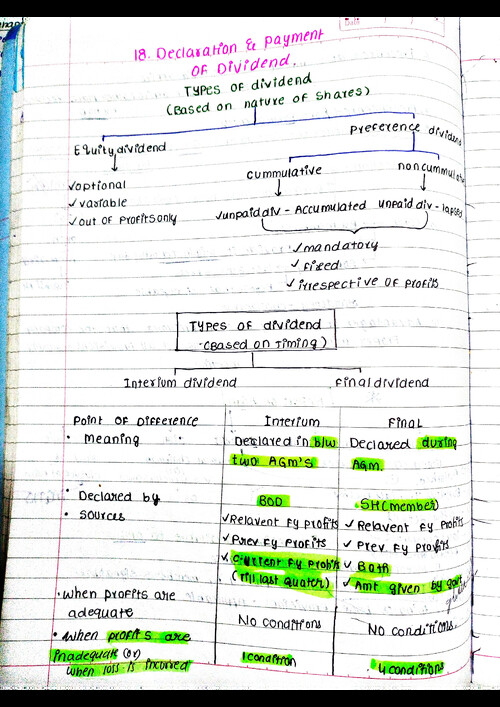 18. Declaration & Payment
OF Dividend.
TYPES of dividend
(Based on nature of shares)
Equity dividend
Preference dividend
✓optional
✓variable
✓out of Profits only
cummulative
noncummulative
✓unpaid div - Accumulated unpaid div - lapses
✓mandatory
✓fixed
✓irrespective of Profits
TYPES of dividend
(Based on Timing)
Interium dividend
Final dividend
Point of Difference Interium Final
• meaning Declared in b/w Declared during
two AGM'S AGM.
• Declared by BOD SH(member)
• Sources ✓Relavent fy profits ✓Relavent fy Profits
✓Prev fy Profits ✓Prev fy Profits
✓current fy Profits ✓Both
(Till last quater) ✓Amt given by govt
• when profits are
adequate No conditions No conditions.
• when profits are
inadequate (or) 1 condition 4 conditions
when loss is incurred